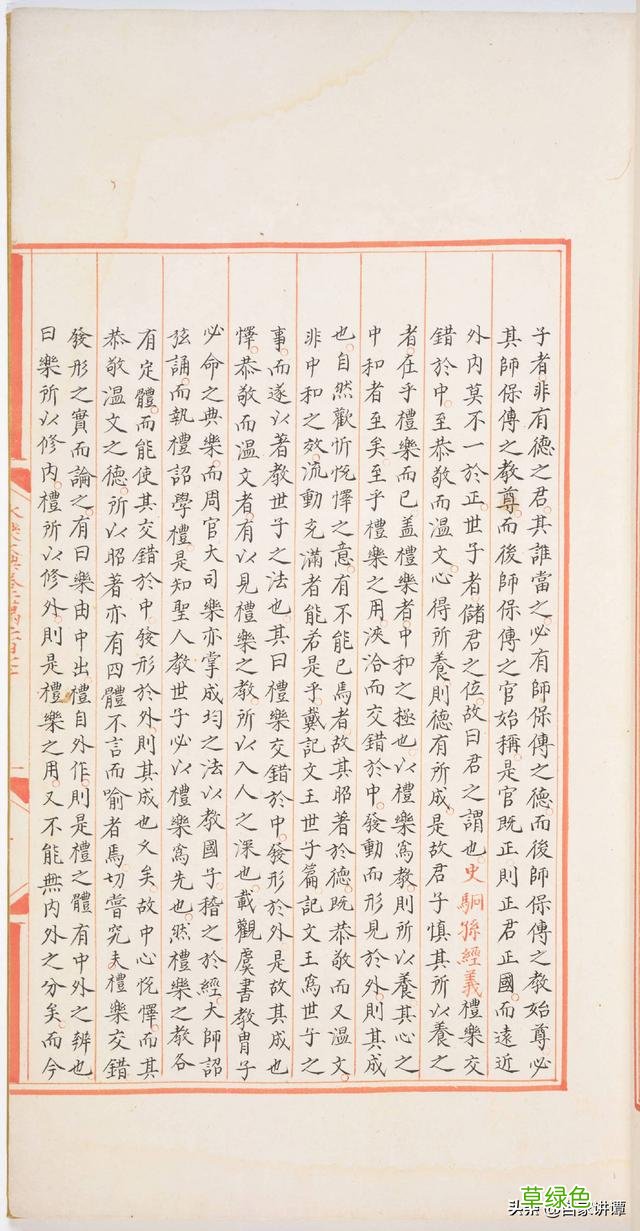 子者非有德之君其誰當之必有師保傅之德而後師保傅之教始尊必
其師保傅之教尊而後師保傅之官始稱是官既正則正君正國而遠近
外內莫不一於正世子者儲君之位故曰君之謂也史駉孫經義禮樂交
錯於中至恭敬而溫文心得所養則德有所成是故君子慎其所以養之
者在乎禮樂而已盖禮樂者中和之極也以禮樂為教則所以養其心之
中和者至矣至乎禮樂之用浹洽而交錯於中發動而形見於外則其成
也自然歡忻悅懌之意有不能已焉者故其昭著於德既恭敬而又溫文
非中和之效流動充滿者能若是乎戴記文王世子篇記文王為世子之
事而遂以著教世子之法也其曰禮樂交錯於中發形於外是故其成也
懌恭敬而溫文者有以見禮樂之教所以入人之深也載觀虞書教冑子
必命之典樂而周官大司樂亦掌成均之法以教國子稽之於經大師詔
弦誦而執禮詔學禮是知聖人教世子必以禮樂為先也然禮樂之教各
有定體而能使其交錯於中發形於外則其成也文矣故中心悅懌而其
恭敬溫文之德所以昭著亦有四體不言而喻者焉切嘗究夫禮樂交錯
發形之實而論之有曰樂由中出禮自外作則是禮之體有中外之辨也
曰樂所以修內禮所以修外則是禮樂之用又不能無內外之分矣而今
草绿色
头条 @百家讲谭